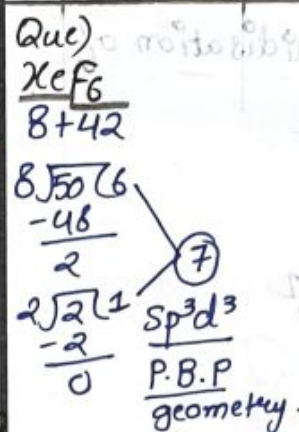 Que)
XeF6
8+42
8)50(6
-48
2
7
2)2(1
-2
0
sp³d³
P.B.P
geometry.